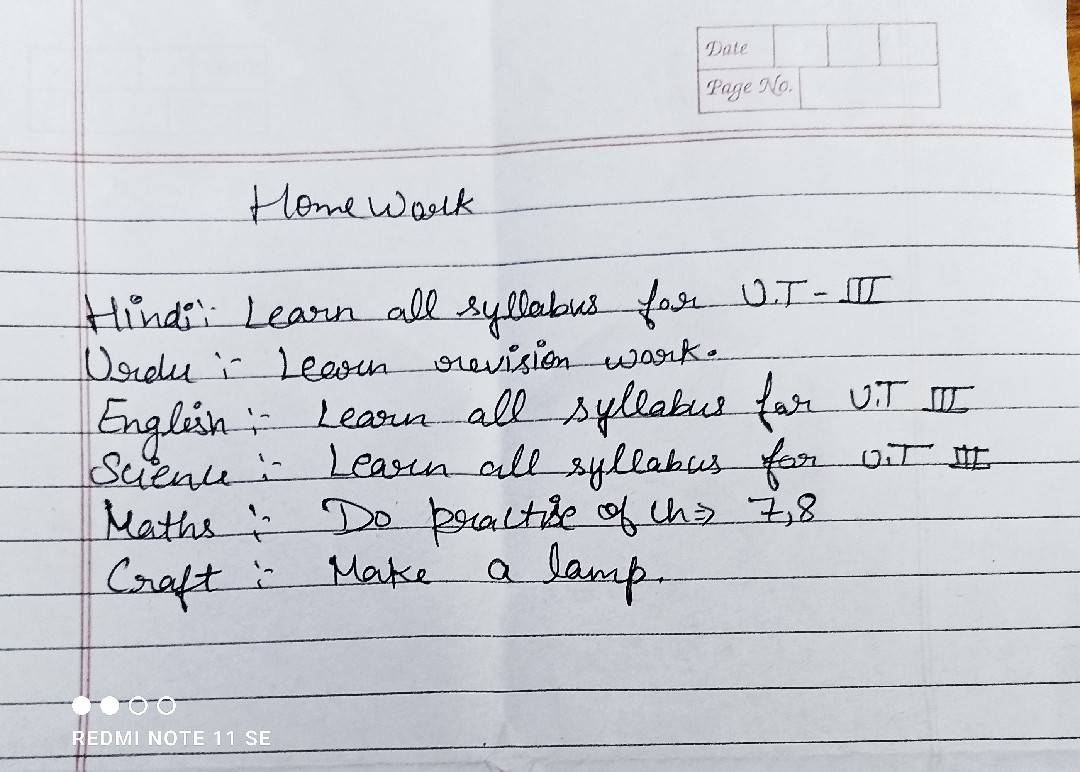 Date
Page No.
Home Work
Hindi:- Learn all syllabus for U.T-III
Urdu :- Learn revision work.
English :- Learn all syllabus for U.T III
Science :- Learn all syllabus for U.T III
Maths :- Do practise of ch⇒ 7,8
Craft :- Make a lamp.
REDMI NOTE 11 SE